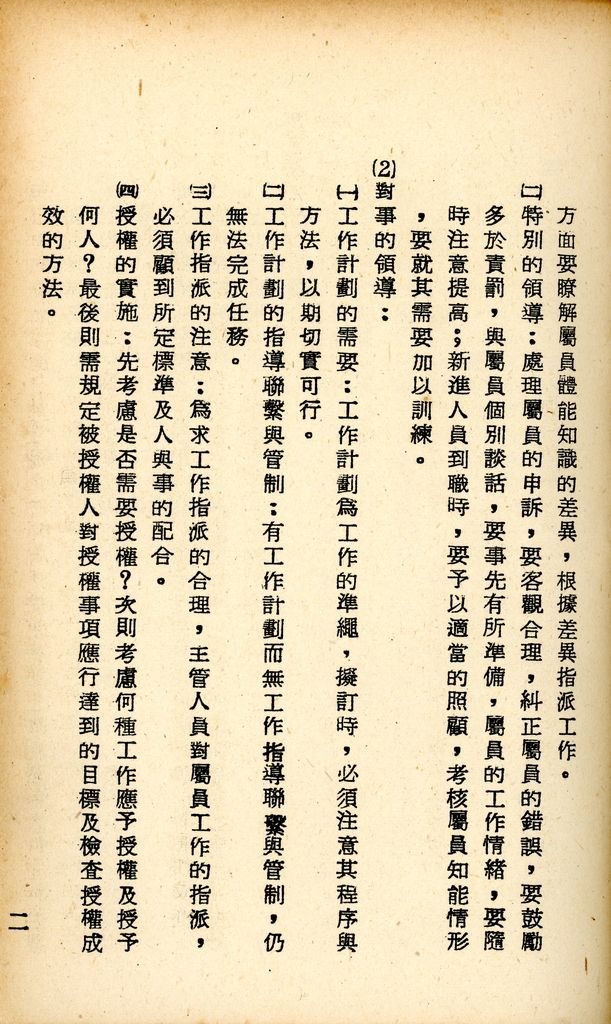 方面要瞭解屬員體能知識的差異，根據差異指派工作。
㈡特別的領導：處理屬員的申訴，要客觀合理，糾正屬員的錯誤，要鼓勵
多於責罰，與屬員個別談話，要事先有所準備，屬員的工作情緒，要隨
時注意提高；新進人員到職時，要予以適當的照顧，考核屬員知能情形
，要就其需要加以訓練。
(2)對事的領導：
㈠工作計劃的需要：工作計劃爲工作的準繩，擬訂時，必須注意其程序與
方法，以期切實可行。
㈡工作計劃的指導聯繫與管制：有工作計劃而無工作指導聯繫與管制，仍
無法完成任務。
㈢工作指派的注意：爲求工作指派的合理，主管人員對屬員工作的指派，
必須顧到所定標準及人與事的配合。
㈣授權的實施：先考慮是否需要授權？次則考慮何種工作應予授權及授予
何人？最後則需規定被授權人對授權事項應行達到的目標及檢查授權成
效的方法。
一一